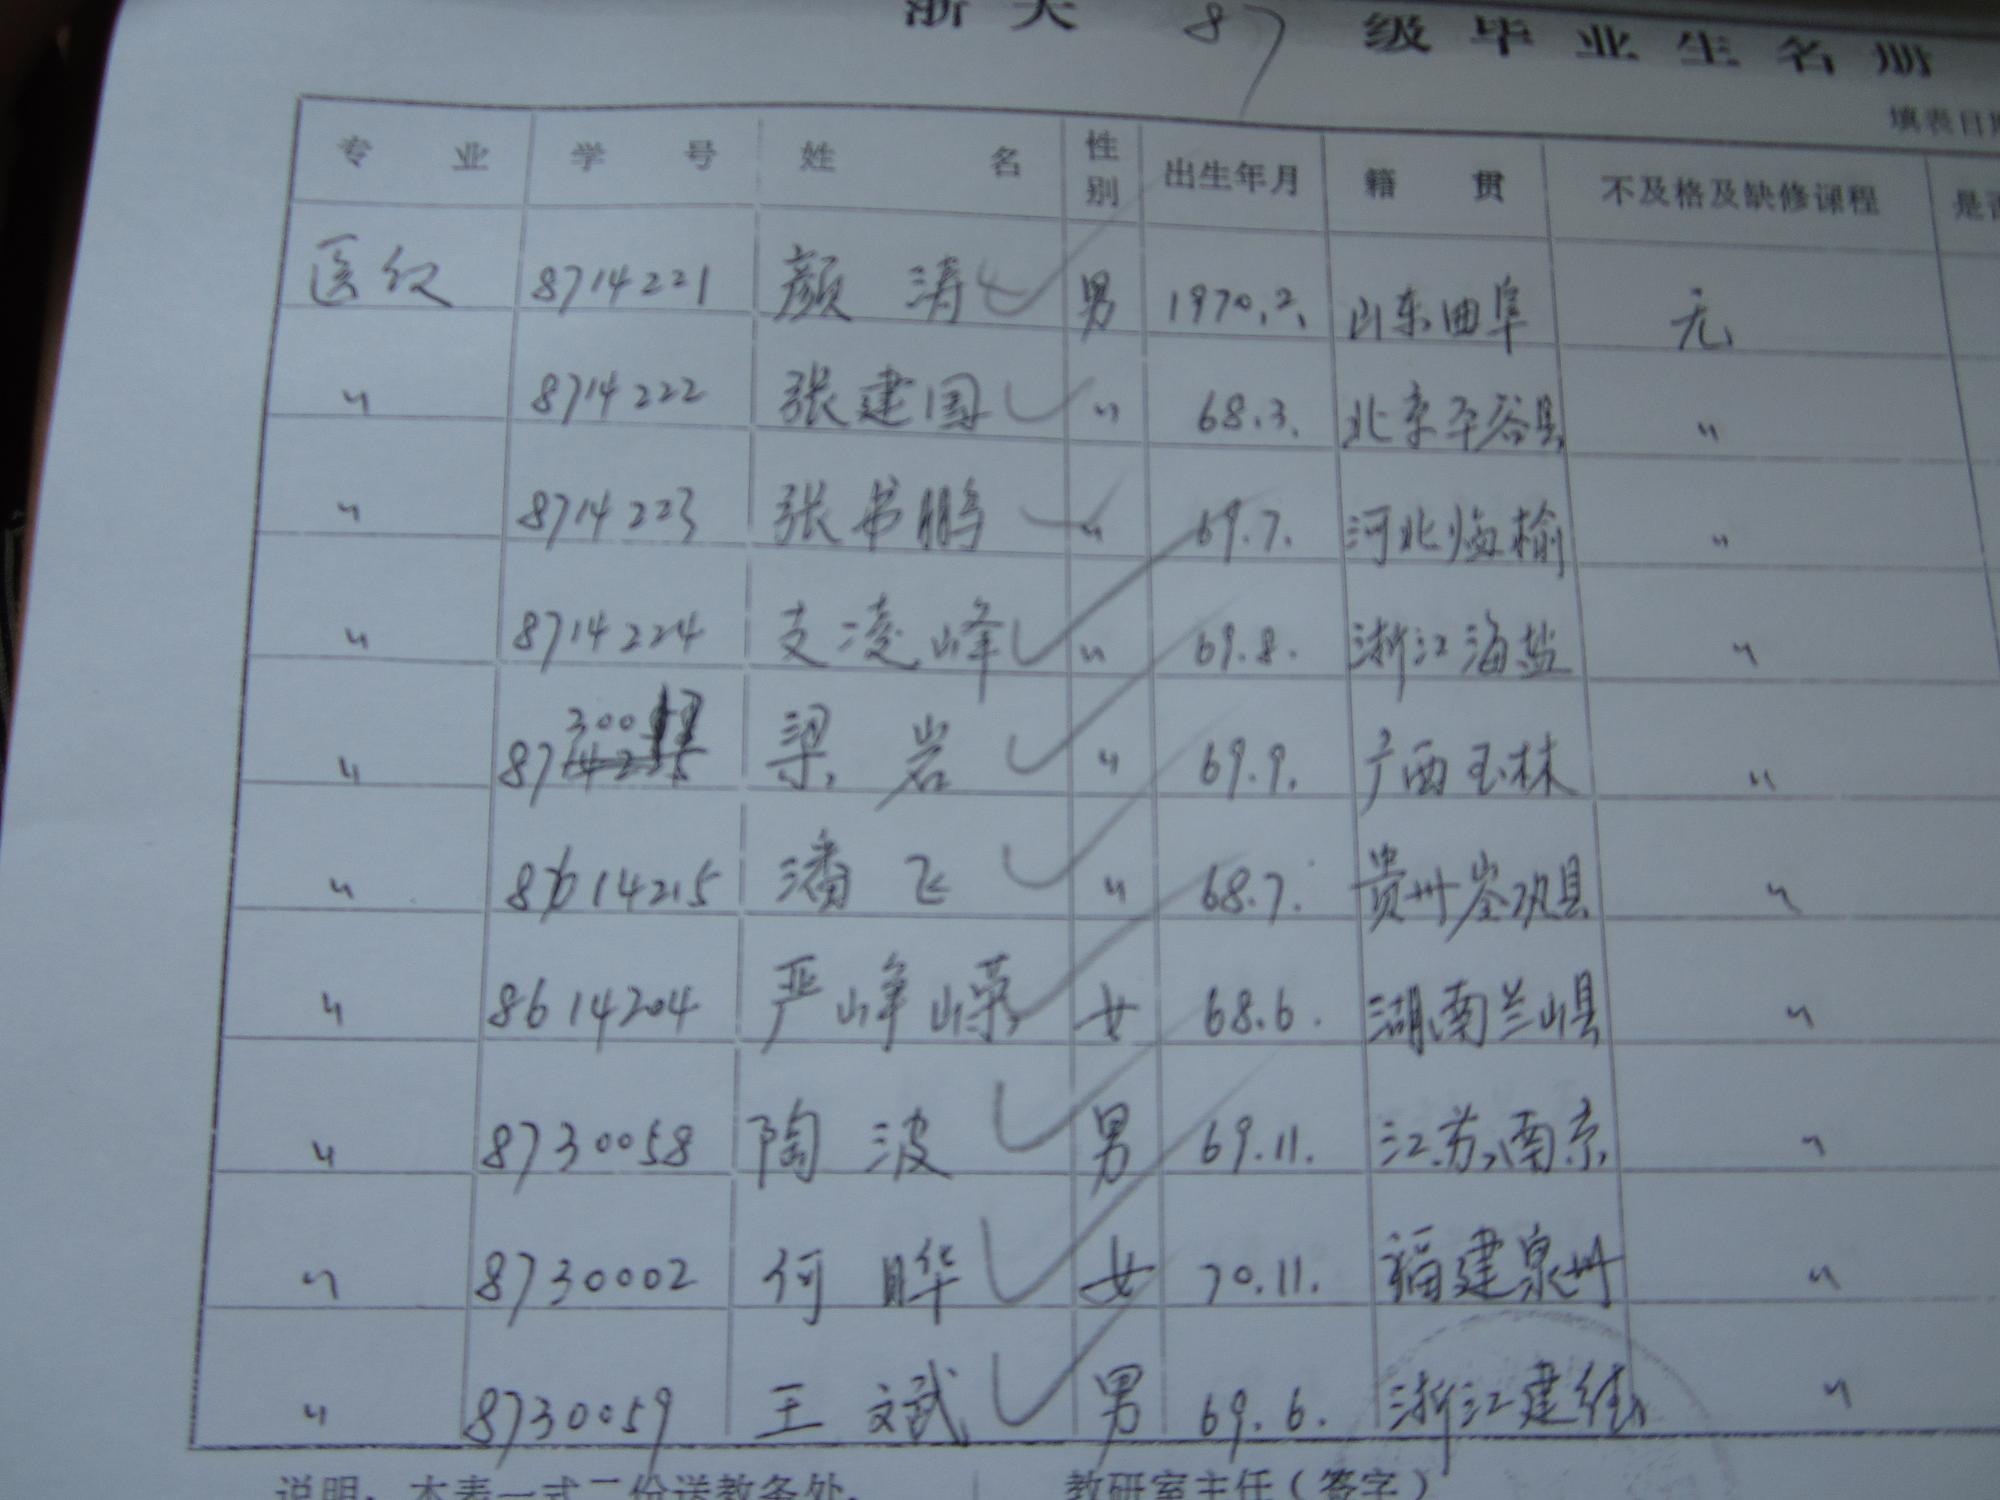 浙大 87 级毕业生名册
填表日期
专业 学号 姓名 性别 出生年月 籍贯 不及格及缺修课程 是否
医仪 8714221 颜涛 男 1970.2. 山东曲阜 无
〃 8714222 张建国 〃 68.3. 北京平谷县 〃
〃 8714223 张书鹏 〃 69.7. 河北临榆 〃
〃 8714224 支凌峰 〃 69.8. 浙江海盐 〃
〃 87300 梁岩 〃 69.9. 广西玉林 〃
〃 8614215 潘飞 〃 68.7. 贵州岑巩县 〃
〃 8614204 严峥嵘 女 68.6. 湖南兰山县 〃
〃 8730058 陶波 男 69.11. 江苏南京 〃
〃 8730002 何晔 女 70.11. 福建泉州 〃
〃 8730059 王斌 男 69.6. 浙江建德 〃
说明：本表一式二份送教务处. 教研室主任（签字）